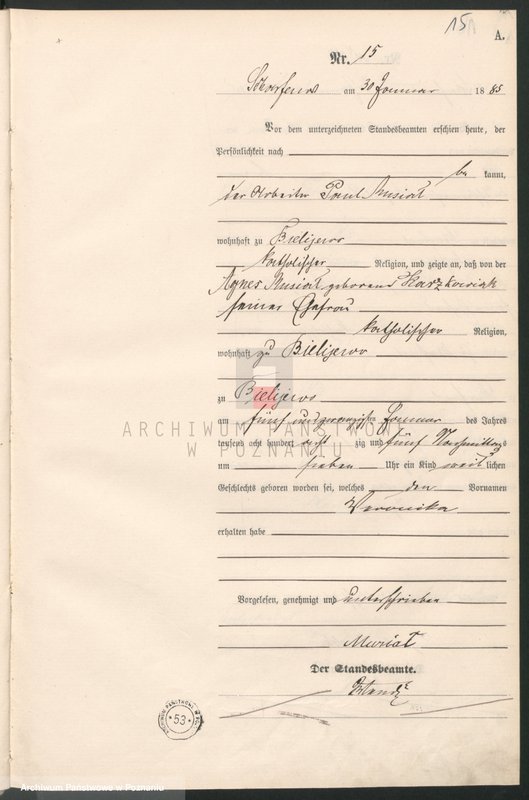 15
A.
Nr. 15
am 30 Januar 1885
Vor dem unterzeichneten Standesbeamten erschien heute, der
Persönlichkeit nach
be kannt,
der Arbeiter Paul Musiał
wohnhaft zu Bielejewo
katholischer Religion, und zeigte an, daß von der
Agnes Musiał geborene Skarzkowiak
seiner Ehefrau
katholischer Religion,
wohnhaft zu Bielejewo
zu Bielejewo
am fünf und zwanzigsten Januar des Jahres
tausend acht hundert acht zig und fünf Nachmittags
um sieben Uhr ein Kind weib lichen
Geschlechts geboren worden sei, welches den Vornamen
Veronika
erhalten habe
Vorgelesen, genehmigt und unterschrieben
Musiał
Der Standesbeamte.
ARCHIWUM PAŃSTWOWE
W POZNANIU
53
Archiwum Państwowe w Poznaniu